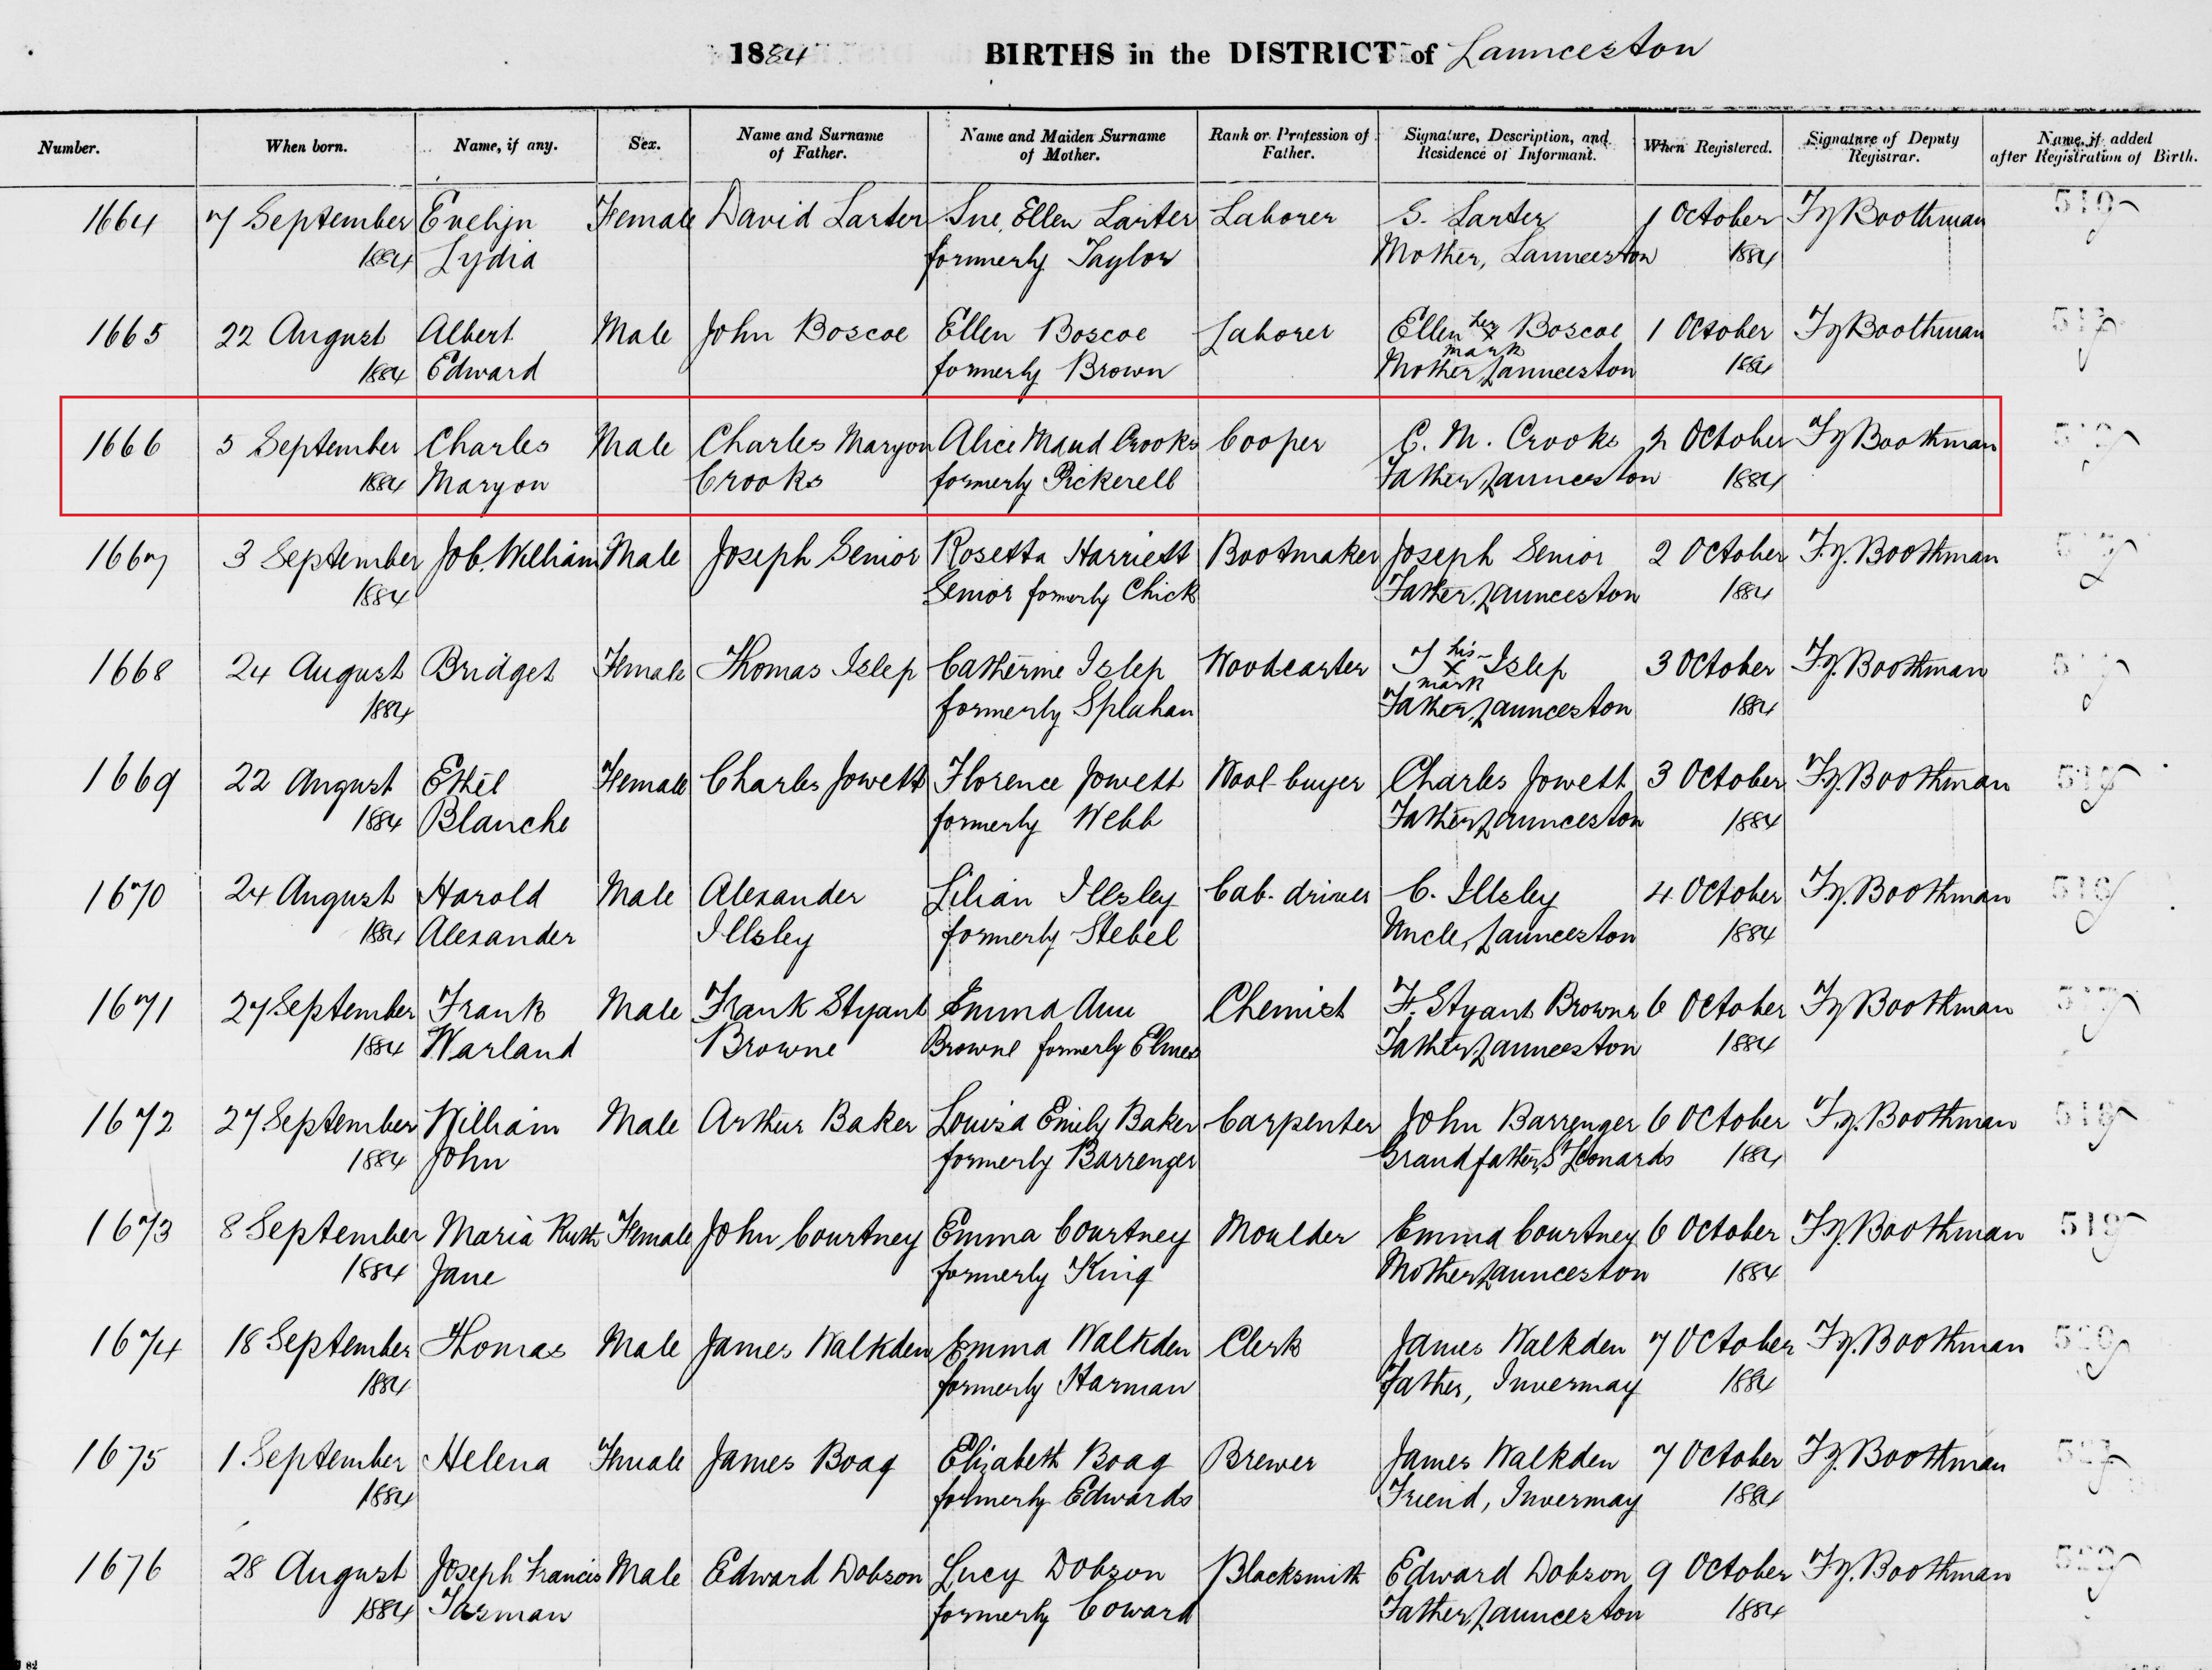 1884 BIRTHS in the DISTRICT of Launceston
Number. When born. Name, if any. Sex. Name and Surname of Father. Name and Maiden Surname of Mother. Rank or Profession of Father. Signature, Description, and Residence of Informant. When Registered. Signature of Deputy Registrar. Name, if added after Registration of Birth.
1664 7 September Evelyn Female David Larter Sue Ellen Larter Laborer S. Larter 1 October Boothman
1884 Lydia formerly Taylor Mother, Launceston 1884
1665 22 August Albert Male John Boscoe Ellen Boscoe Laborer Ellen her x mark Boscoe 1 October Boothman
1884 Edward formerly Brown Mother, Launceston 1884
1666 5 September Charles Male Charles Maryon Alice Maud Crooks Cooper C. M. Crooks 2 October Boothman
1884 Maryon Crooks formerly Pickerell Father, Launceston 1884
1667 3 September Job William Male Joseph Senior Rosetta Harriett Bootmaker Joseph Senior 2 October Boothman
1884 Senior formerly Chick Father, Launceston 1884
1668 24 August Bridget Female Thomas Islep Catherine Islep Woodcarter T his x mark Islep 3 October Boothman
1884 formerly Splahan Father, Launceston 1884
1669 22 August Ethel Female Charles Jowett Florence Jowett Wool-buyer Charles Jowett 3 October Boothman
1884 Blanche formerly Webb Father, Launceston 1884
1670 24 August Harold Male Alexander Lilian Illsley Cab-driver C. Illsley 4 October Boothman
1884 Alexander Illsley formerly Stebel Uncle, Launceston 1884
1671 27 September Frank Male Frank Styant Emma Ann Chemist F. Styant Browne 6 October Boothman
1884 Warland Browne Browne formerly Elmes Father, Launceston 1884
1672 27 September William Male Arthur Baker Louisa Emily Baker Carpenter John Barrenger 6 October Boothman
1884 John formerly Barrenger Grandfather, St Leonards 1884
1673 8 September Maria Ruth Female John Courtney Emma Courtney Moulder Emma Courtney 6 October Boothman 519
1884 Jane formerly King Mother, Launceston 1884
1674 18 September Thomas Male James Walkden Emma Walkden Clerk James Walkden 7 October Boothman
1884 formerly Harman Father, Invermay 1884
1675 1 September Helena Female James Boag Elizabeth Boag Brewer James Walkden 7 October Boothman
1884 formerly Edwards Friend, Invermay 1884
1676 28 August Joseph Francis Male Edward Dobson Lucy Dobson Blacksmith Edward Dobson 9 October Boothman
1884 Tasman formerly Coward Father, Launceston 1884
82